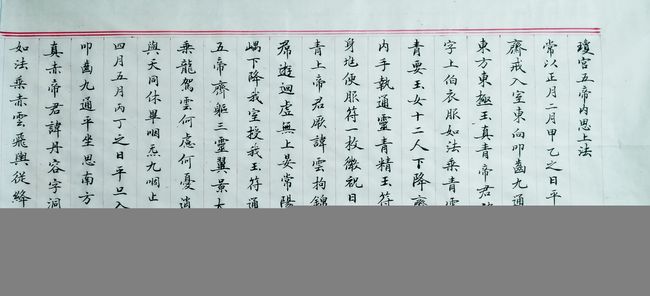 瓊宮五帝内思上法
常以正月二月甲乙之日平
齋戒入室東向叩齒九通
東方東極玉真青帝君
字上伯衣服如法乘青雲
青要玉女十二人下降齋
内手執通靈青精玉符
身地便服符一枚微祝曰
青上帝君厥諱雲拘錦
羣遊迴虛無上晏常陽
崵下降我室授我玉符通
五帝齊軀三靈翼景太
乘龍駕雲何慮何憂逍
與天同休畢咽炁九咽止
四月五月丙丁之日平旦入
叩齒九通平坐思南方
真赤帝君諱丹容字洞
如法乘赤雲飛輿從絳